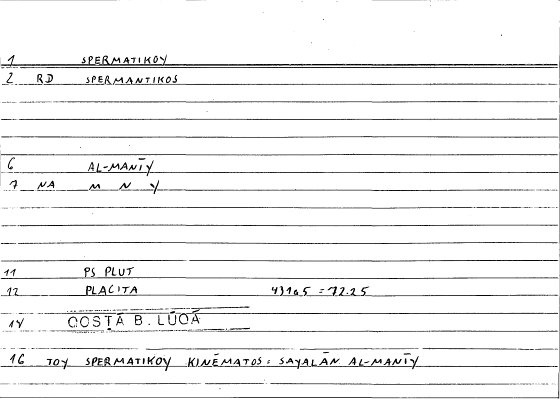 1 SPERMATIKOY
2 RD SPERMANTIKOS
6 AL-MANĪY
7 NA M N Y
11 PS PLUT
12 PLACITA 43165 = 72.25
14 QOSṬĀ B. LŪQĀ
16 TOY SPERMATIKOY KINĒMATOS: SAYALĀN AL-MANĪY